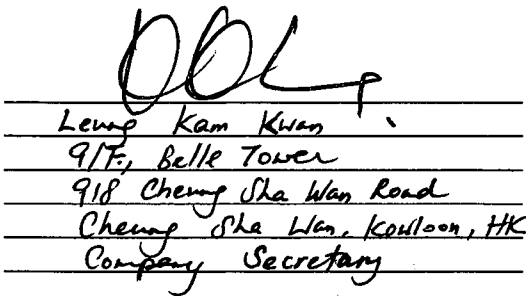 Leung Kam Kwan
9/F., Belle Tower
918 Cheung Sha Wan Road
Cheung Sha Wan, Kowloon, HK
Company Secretary